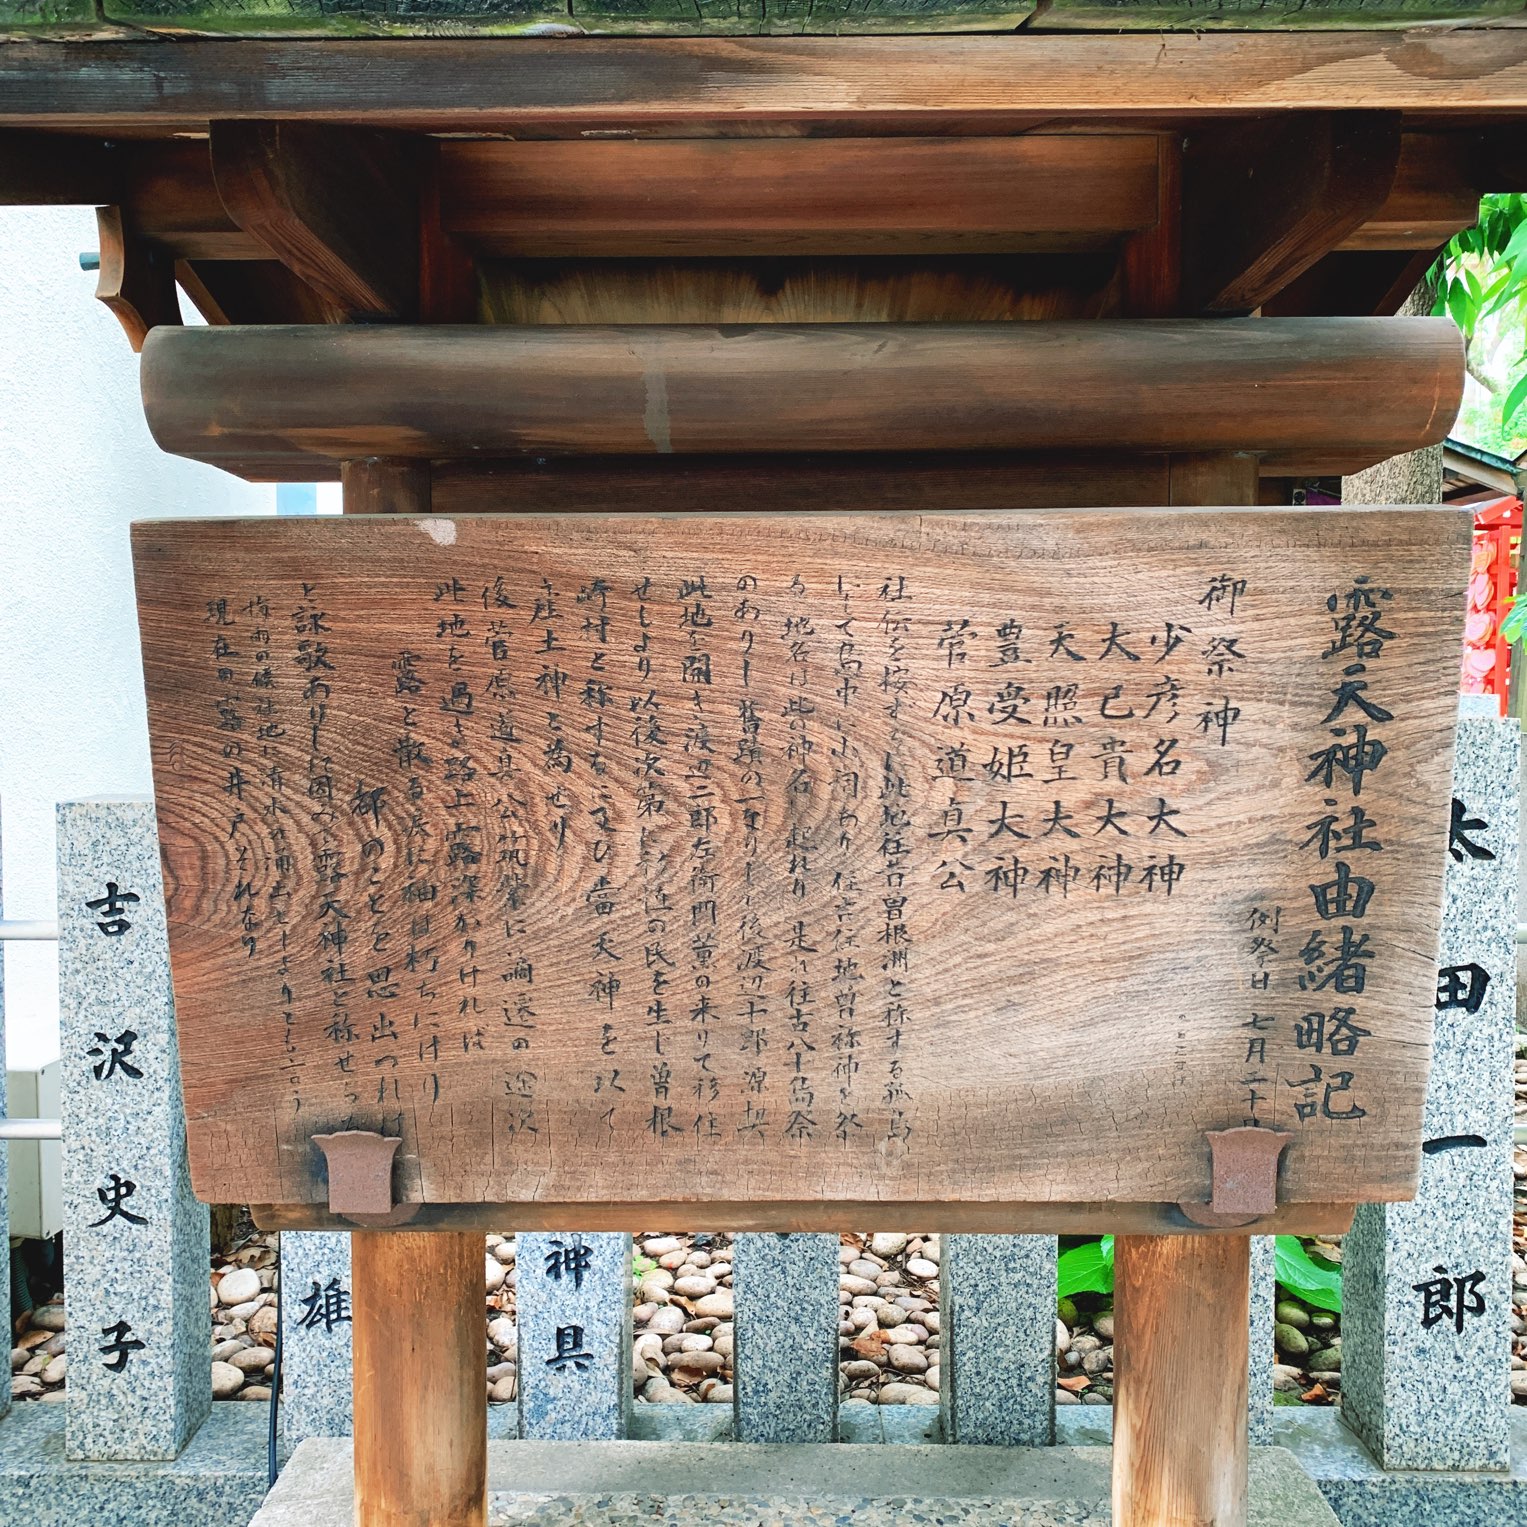 露天神社由緒略記
御祭神
例祭日 七月二十
少彦名大神
大己貴大神
天照皇大神
豊受姫大神
菅原道真公
社伝を按ずるに此地往昔曽根洲と称する孤島
にして島中に小祠あり 住吉住地曽祢神を祭
る 地名は此の神名 起れり 是れ往古八十島祭
のありし舊蹟の一なりし 後渡辺十郎源契
此地を開き渡辺二郎左衛門薫の来りて移住
せしより以後次第に 近の民を生じ曽根
崎村と称するに及び當天神を以て
産土神と為せり
後菅原道真公筑紫に謫遷の途次
此地を過 路上露深かりければ
露と散る 袖は朽ちにけり
都のことを思ひ出つれば
と詠歌ありしに因み 露天神社と称せ
梅雨の候社地に清水の涌出せしよりとも言う
現在の露の井戸それなり
吉沢史子
雄
神具
太田一郎